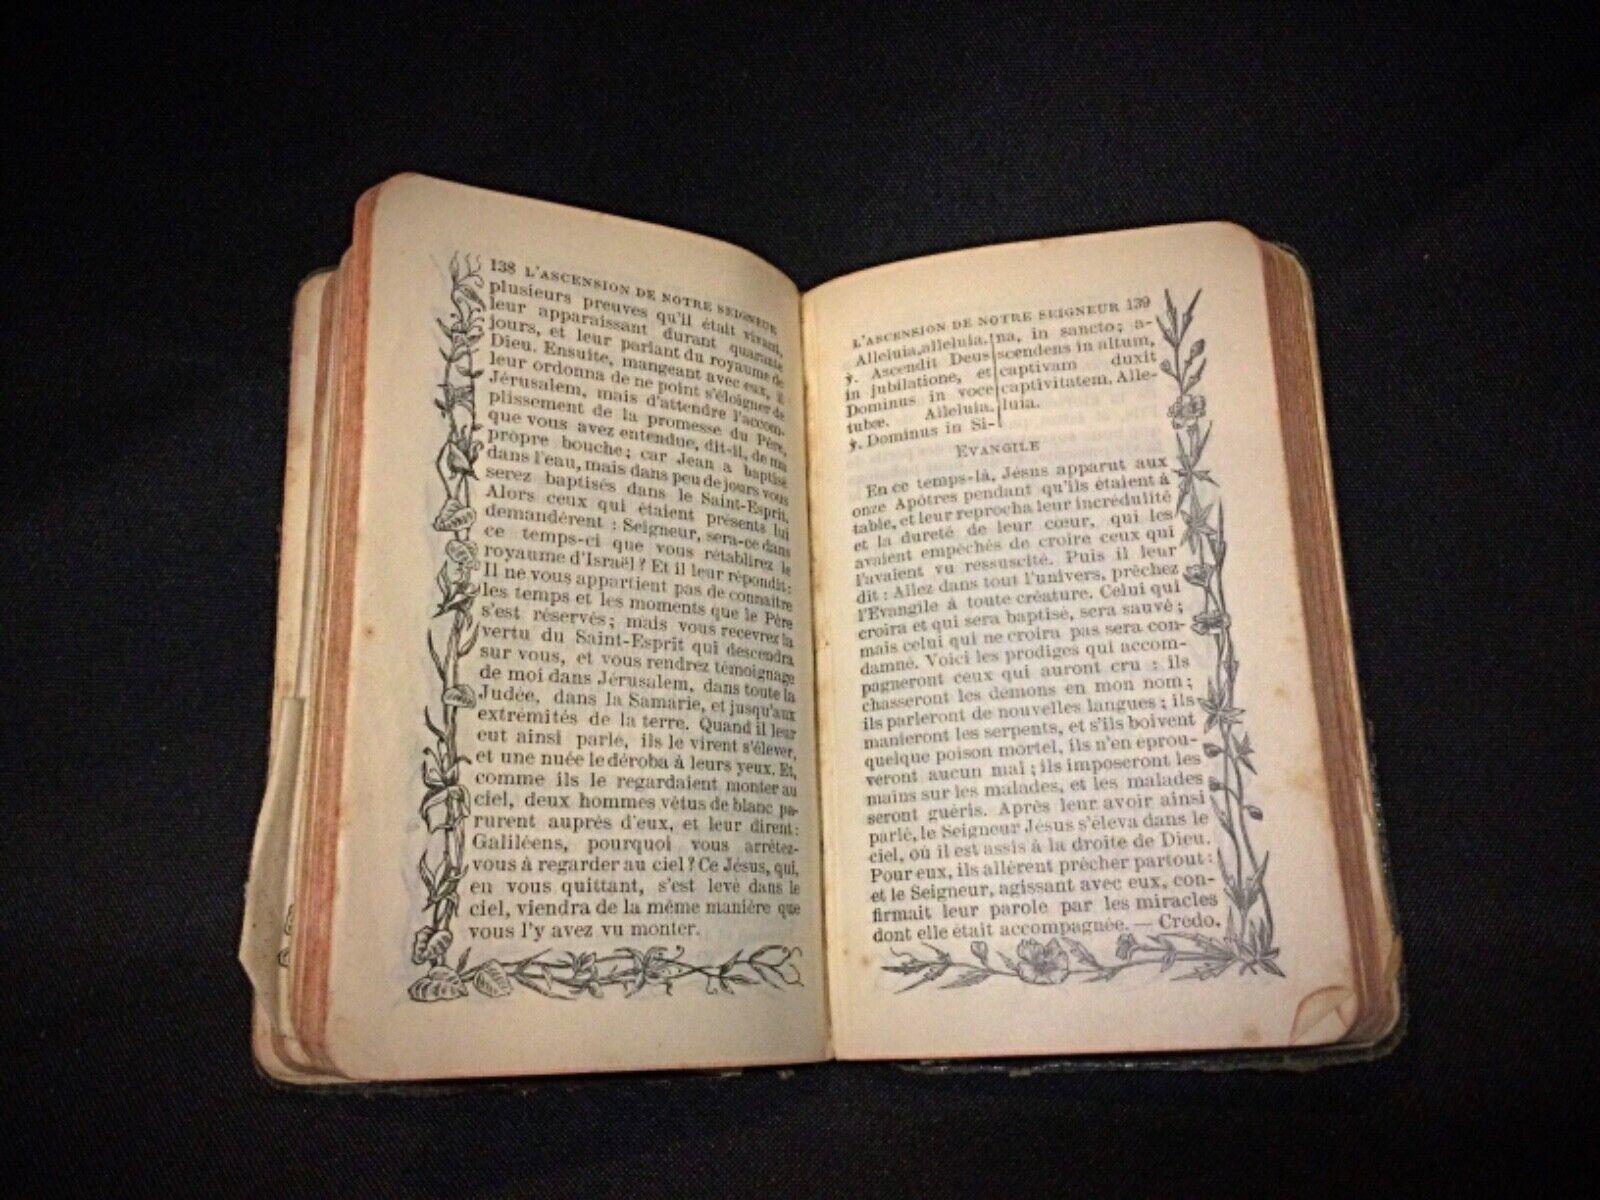 138 L'ASCENSION DE NOTRE SEIGNEUR
plusieurs preuves qu'il était vivant,
leur apparaissant durant quarante
jours, et leur parlant du royaume de
Dieu. Ensuite, mangeant avec eux, il
leur ordonna de ne point s'éloigner de
Jérusalem, mais d'attendre l'accom-
plissement de la promesse du Père,
que vous avez entendue, dit-il, de ma
propre bouche; car Jean a baptisé
dans l'eau, mais dans peu de jours vous
serez baptisés dans le Saint-Esprit.
Alors ceux qui étaient présents lui
demandèrent : Seigneur, sera-ce dans
ce temps-ci que vous rétablirez le
royaume d'Israël? Et il leur répondit:
Il ne vous appartient pas de connaître
les temps et les moments que le Père
s'est réservés; mais vous recevrez la
vertu du Saint-Esprit qui descendra
sur vous, et vous rendrez témoignage
de moi dans Jérusalem, dans toute la
Judée, dans la Samarie, et jusqu'aux
extrémités de la terre. Quand il leur
eut ainsi parlé, ils le virent s'élever,
et une nuée le déroba à leurs yeux. Et,
comme ils le regardaient monter au
ciel, deux hommes vêtus de blanc pa-
rurent auprès d'eux, et leur dirent:
Galiléens, pourquoi vous arrêtez-
vous à regarder au ciel? Ce Jésus, qui,
en vous quittant, s'est levé dans le
ciel, viendra de la même manière que
vous l'y avez vu monter.
L'ASCENSION DE NOTRE SEIGNEUR 139
Alleluia, alleluia.
℣. Ascendit Deus
in jubilatione, et
Dominus in voce
tubæ. Alleluia.
℣. Dominus in Si-
na, in sancto; a-
scendens in altum,
captivam duxit
captivitatem. Alle-
luia.
EVANGILE
En ce temps-là, Jésus apparut aux
onze Apôtres pendant qu'ils étaient à
table, et leur reprocha leur incrédulité
et la dureté de leur cœur, qui les
avaient empêchés de croire ceux qui
l'avaient vu ressuscité. Puis il leur
dit : Allez dans tout l'univers, prêchez
l'Evangile à toute créature. Celui qui
croira et qui sera baptisé, sera sauvé;
mais celui qui ne croira pas sera con-
damné. Voici les prodiges qui accom-
pagneront ceux qui auront cru : ils
chasseront les démons en mon nom;
ils parleront de nouvelles langues; ils
manieront les serpents, et s'ils boivent
quelque poison mortel, ils n'en éprou-
veront aucun mal; ils imposeront les
mains sur les malades, et les malades
seront guéris. Après leur avoir ainsi
parlé, le Seigneur Jésus s'éleva dans le
ciel, où il est assis à la droite de Dieu.
Pour eux, ils allèrent prêcher partout:
et le Seigneur, agissant avec eux, con-
firmait leur parole par les miracles
dont elle était accompagnée. — Credo.